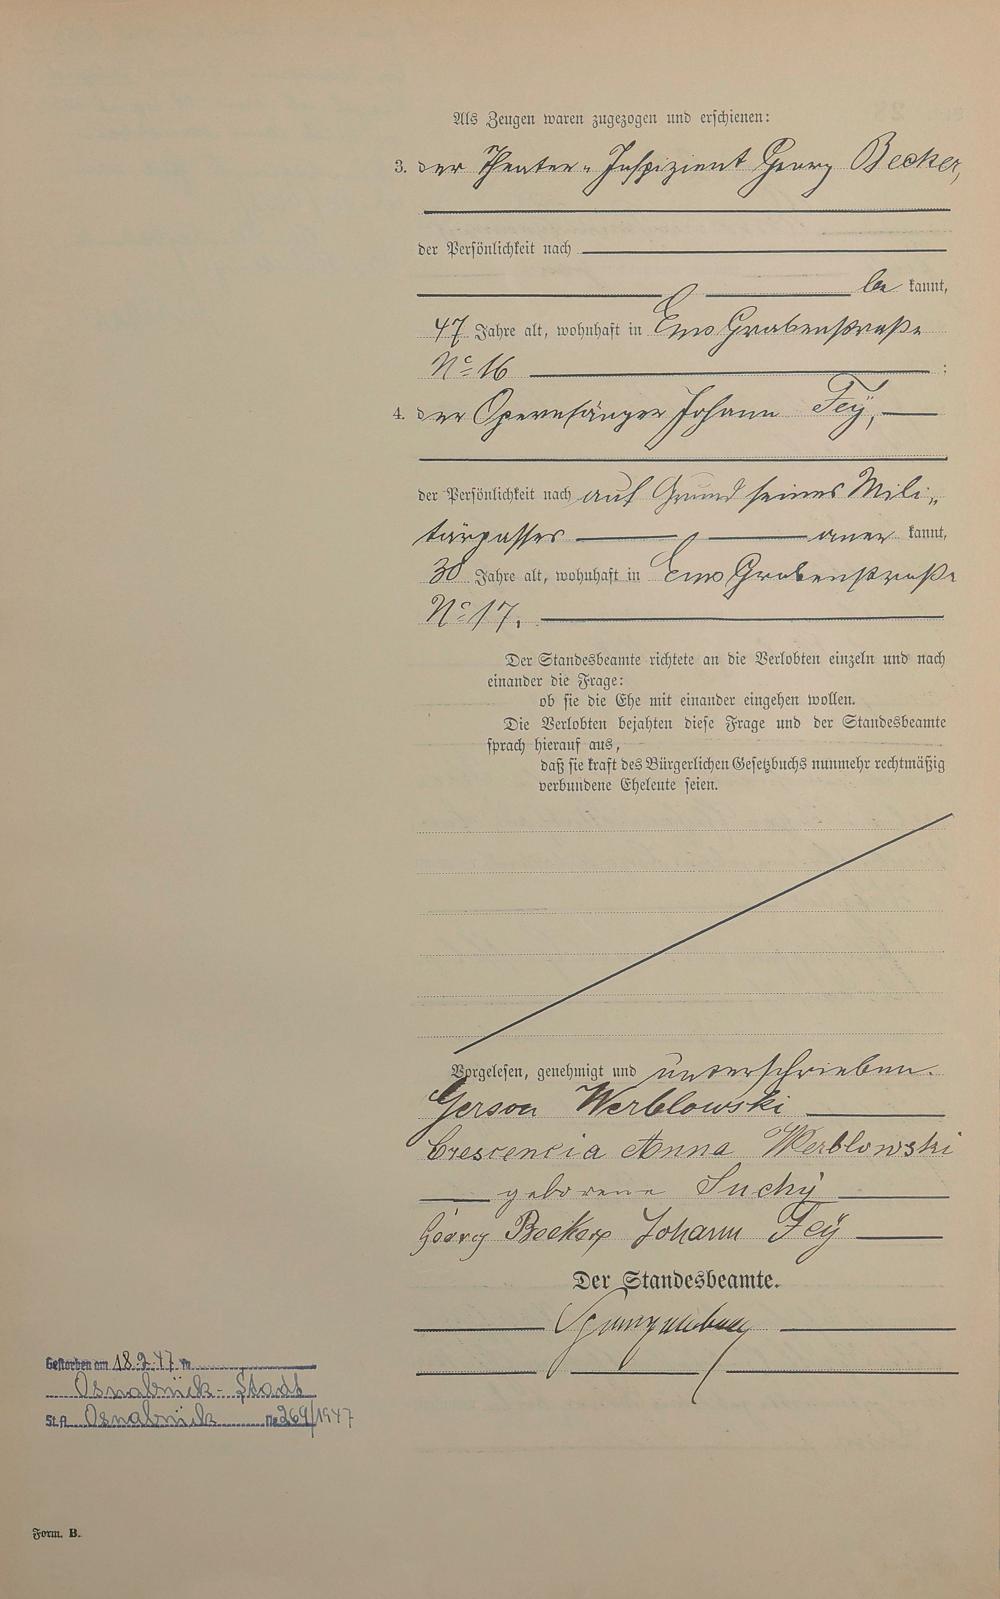 Als Zeugen waren zugezogen und erschienen:
3. der Theater-Inspizient Georg Becker,
der Persönlichkeit nach
be kannt,
47 Jahre alt, wohnhaft in Ems Grabenstraße
No 16 ;
4. der Opernsänger Johann Feÿ,
der Persönlichkeit nach auf Grund seines Mili-
tärpasses aner kannt,
30 Jahre alt, wohnhaft in Ems Grabenstraße
No 17.
Der Standesbeamte richtete an die Verlobten einzeln und nach
einander die Frage:
ob sie die Ehe mit einander eingehen wollen.
Die Verlobten bejahten diese Frage und der Standesbeamte
sprach hierauf aus,
daß sie kraft des Bürgerlichen Gesetzbuchs nunmehr rechtmäßig
verbundene Eheleute seien.
Vorgelesen, genehmigt und unterschrieben.
Gerson Werblowski
Crescencia Anna Werblowski
geborene Suchÿ
Georg Becker Johann Feÿ
Der Standesbeamte.
Gestorben am 18.2.47 in
Osnabrück-Stadt
St.A. Osnabrück No 269/1947
Form. B.